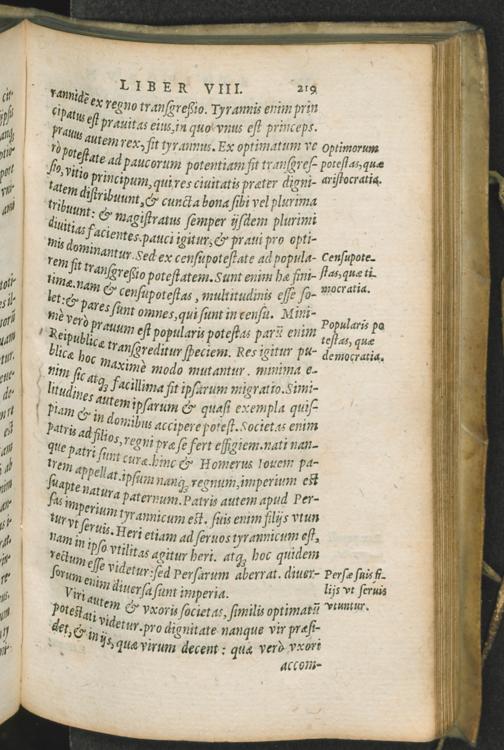 LIBER VIII. 219
rannidē ex regno transgreßio. Tyrannis enim prin
cipatus est prauitas eius, in quo vnus est princeps.
prauus autem rex, fit tyrannus. Ex optimatum ve
rò potestate ad paucorum potentiam fit transgres-
sio, vitio principum, qui res ciuitatis præter digni-
tatem distribuunt, & cuncta bona sibi vel plurima
tribuunt: & magistratus semper ijsdem plurimi
diuitias facientes. pauci igitur, & praui pro opti-
mis dominantur. Sed ex censupotestate ad popula-
rem fit transgreßio potestatem. Sunt enim hæ fini-
timæ. nam & censupotestas, multitudinis esse so-
let: & pares sunt omnes, qui sunt in censu. Mini-
mè verò prauum est popularis potestas parū enim
Reipublicæ transgreditur speciem. Res igitur pu-
blicæ hoc maximè modo mutantur. minima e-
nim sic atq; facillima fit ipsarum migratio. Simi-
litudines autem ipsarum & quasi exempla quis-
piam & in domibus accipere potest. Societas enim
patris ad filios, regni præ se fert effigiem. nati nan-
que patri sunt curæ. hinc & Homerus Iouem pa-
trem appellat. ipsum nanq; regnum, imperium est
suapte natura paternum. Patris autem apud Per-
sas imperium tyrannicum est. suis enim filijs vtun
tur vt seruis. Heri etiam ad seruos tyrannicum est,
nam in ipso vtilitas agitur heri. atq; hoc quidem
rectum esse videtur: sed Persarum aberrat. diuer-
sorum enim diuersa sunt imperia.
Viri autem & vxoris societas, similis optimatū
potestati videtur. pro dignitate nanque vir præsi-
det, & in ijs, quæ virum decent: quæ verò vxori
accom-
Optimorum
potestas, quæ
aristocratia.
Censupote-
stas, quæ ti-
mocratia.
Popularis po
testas, quæ
democratia.
Persæ suis fi-
lijs vt seruis
vtuntur.